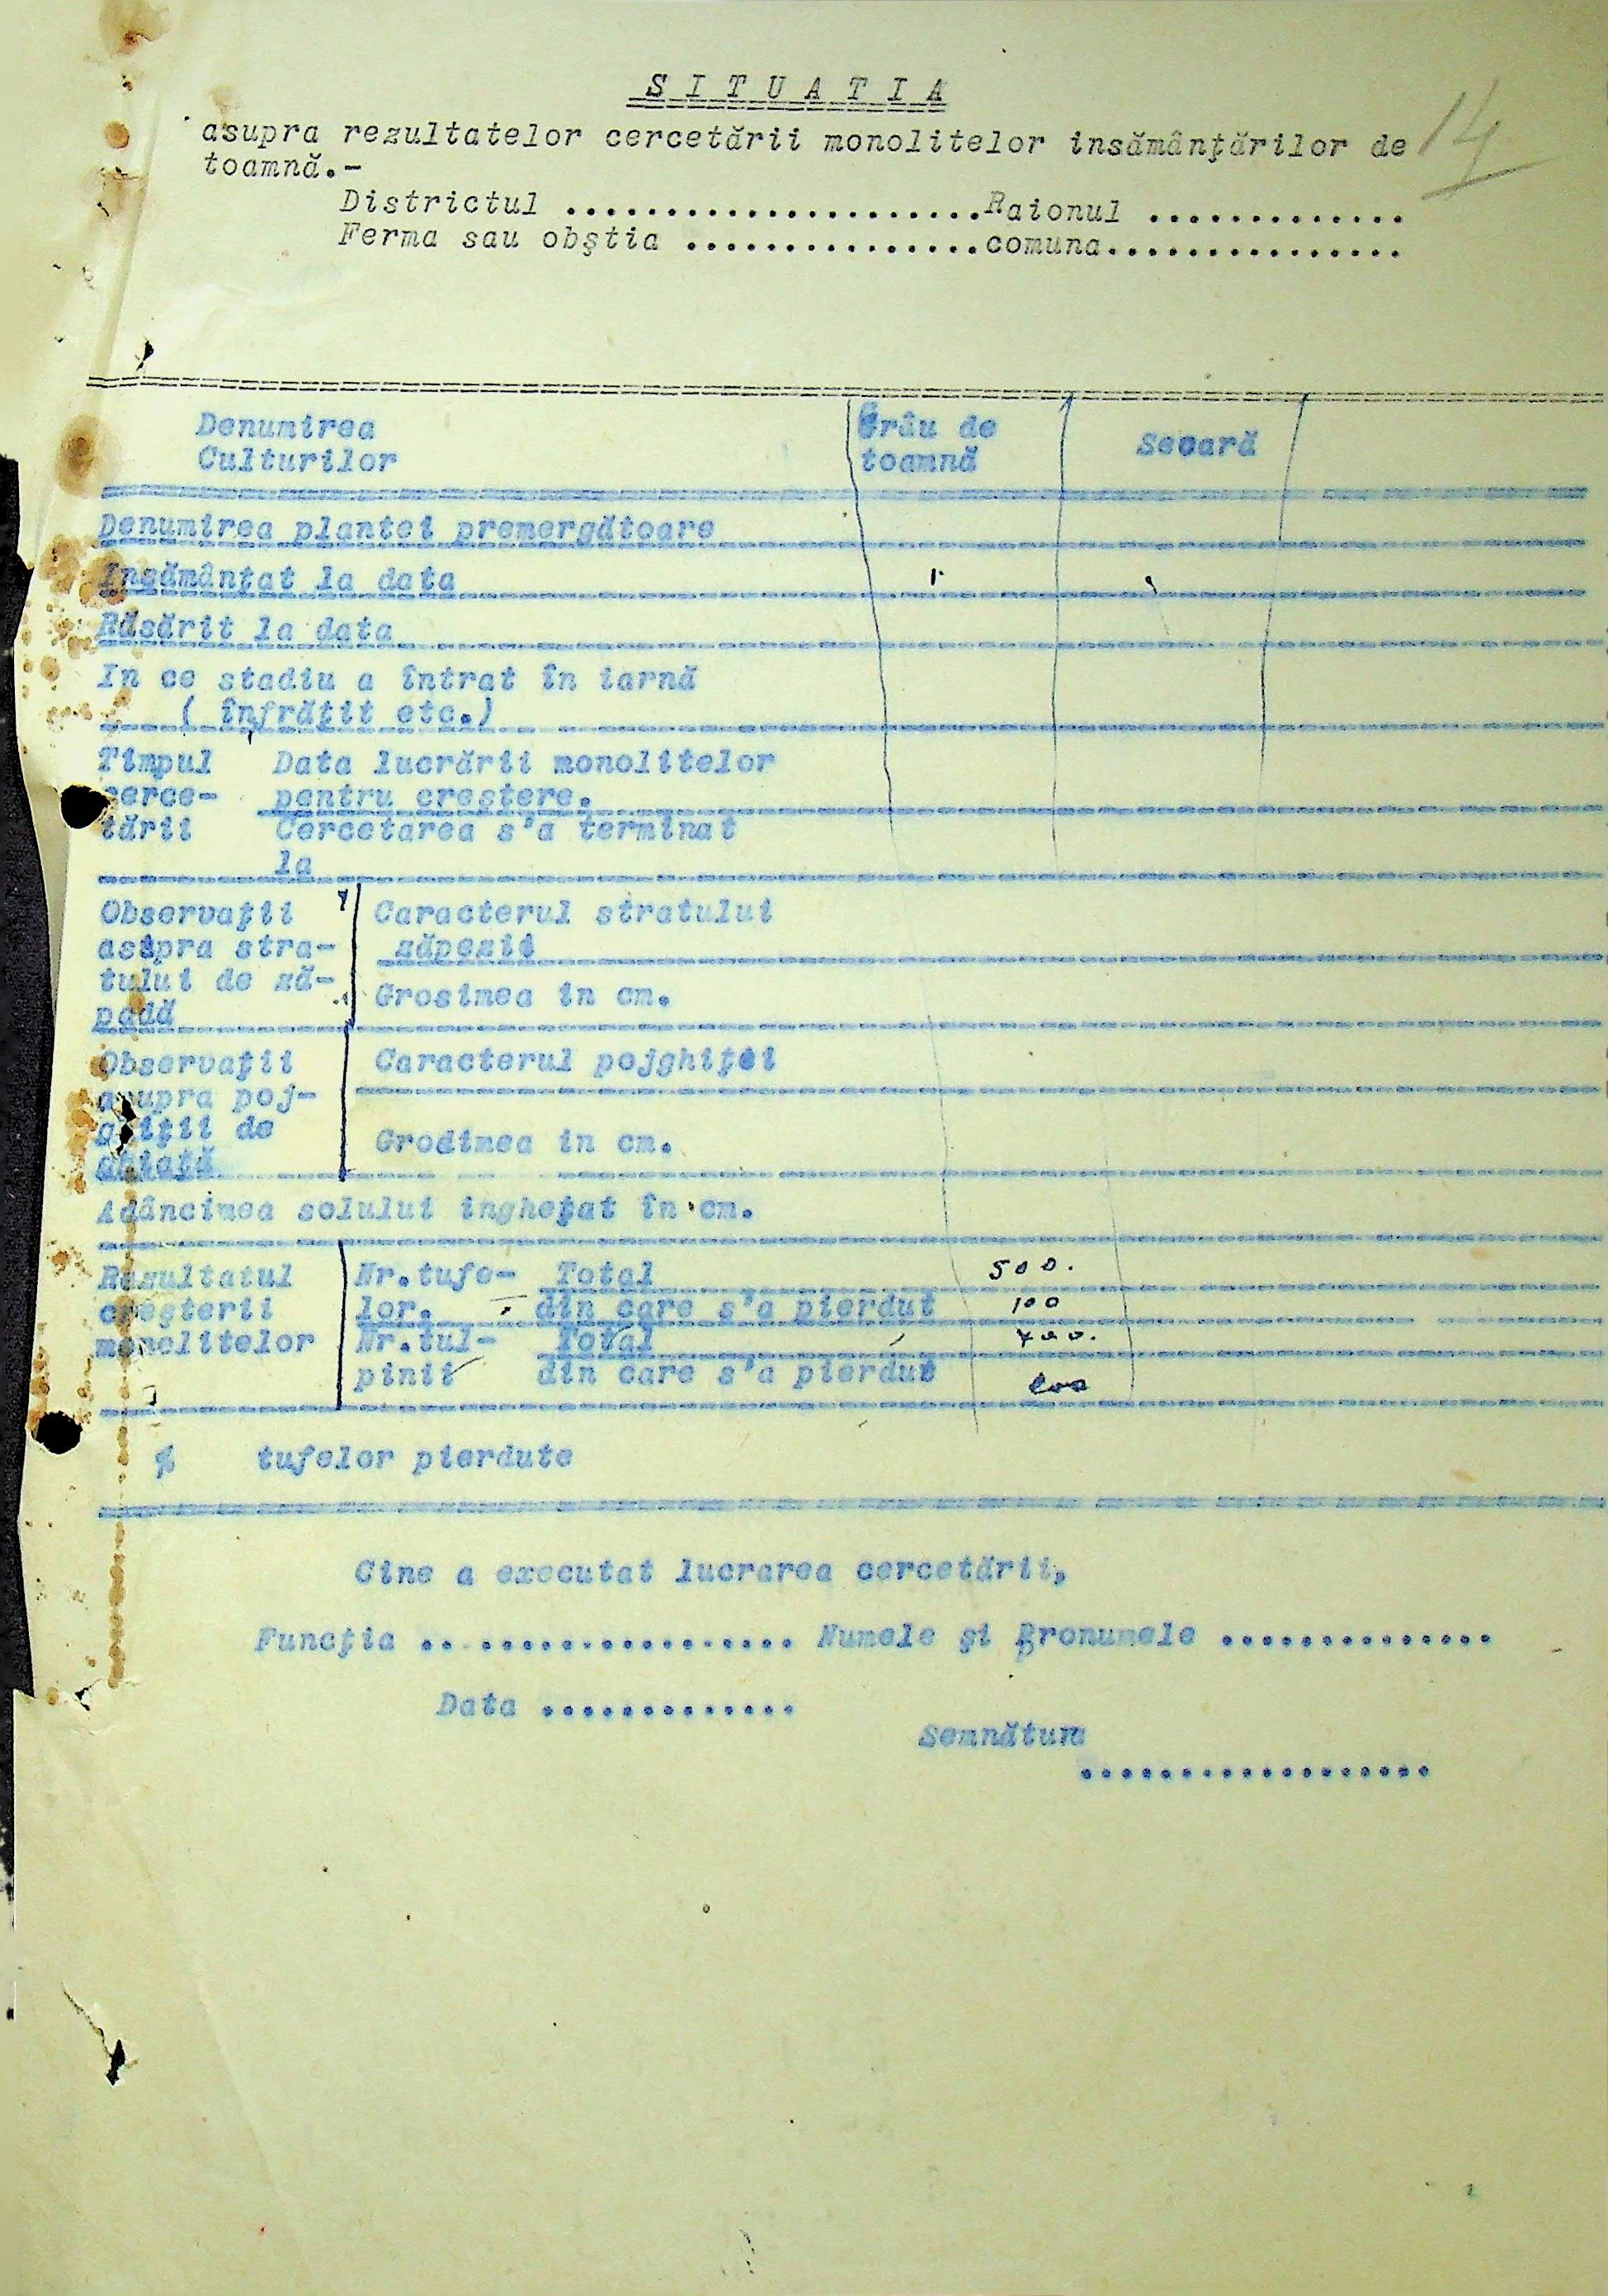 S I T U A T I A
14
asupra rezultatelor cercetării monolitelor insămânţărilor de
toamnă.-
Districtul .....................Raionul .............
Ferma sau obştia ...............comuna...............
Denumirea Grâu de
Culturilor toamnă Secară
Denumirea plantei premergătoare
Insămânţat la data
Răsărit la data
In ce stadiu a întrat în iarnă
( înfrăţit etc.)
Timpul Data lucrării monolitelor
cerce- pentru creştere.
tării Cercetarea s'a terminat
la
Observaţii Caracterul stratului
asupra stra- zăpezii
tului de ză- Grosimea in cm.
padă
Observaţii Caracterul pojghiţei
asupra poj-
ghiţii de Grodimea in cm.
ghiaţă
Adâncimea solului ingheţat în cm.
Rezultatul Nr.tufe- Total 500.
creşterii lor. din care s'a pierdut 100
monolitelor Nr.tul- Total 700.
pinii din care s'a pierdut
% tufelor pierdute
Cine a executat lucrarea cercetării,
Funcţia ................... Numele şi Pronumele ..............
Data .............
Semnătura
..................